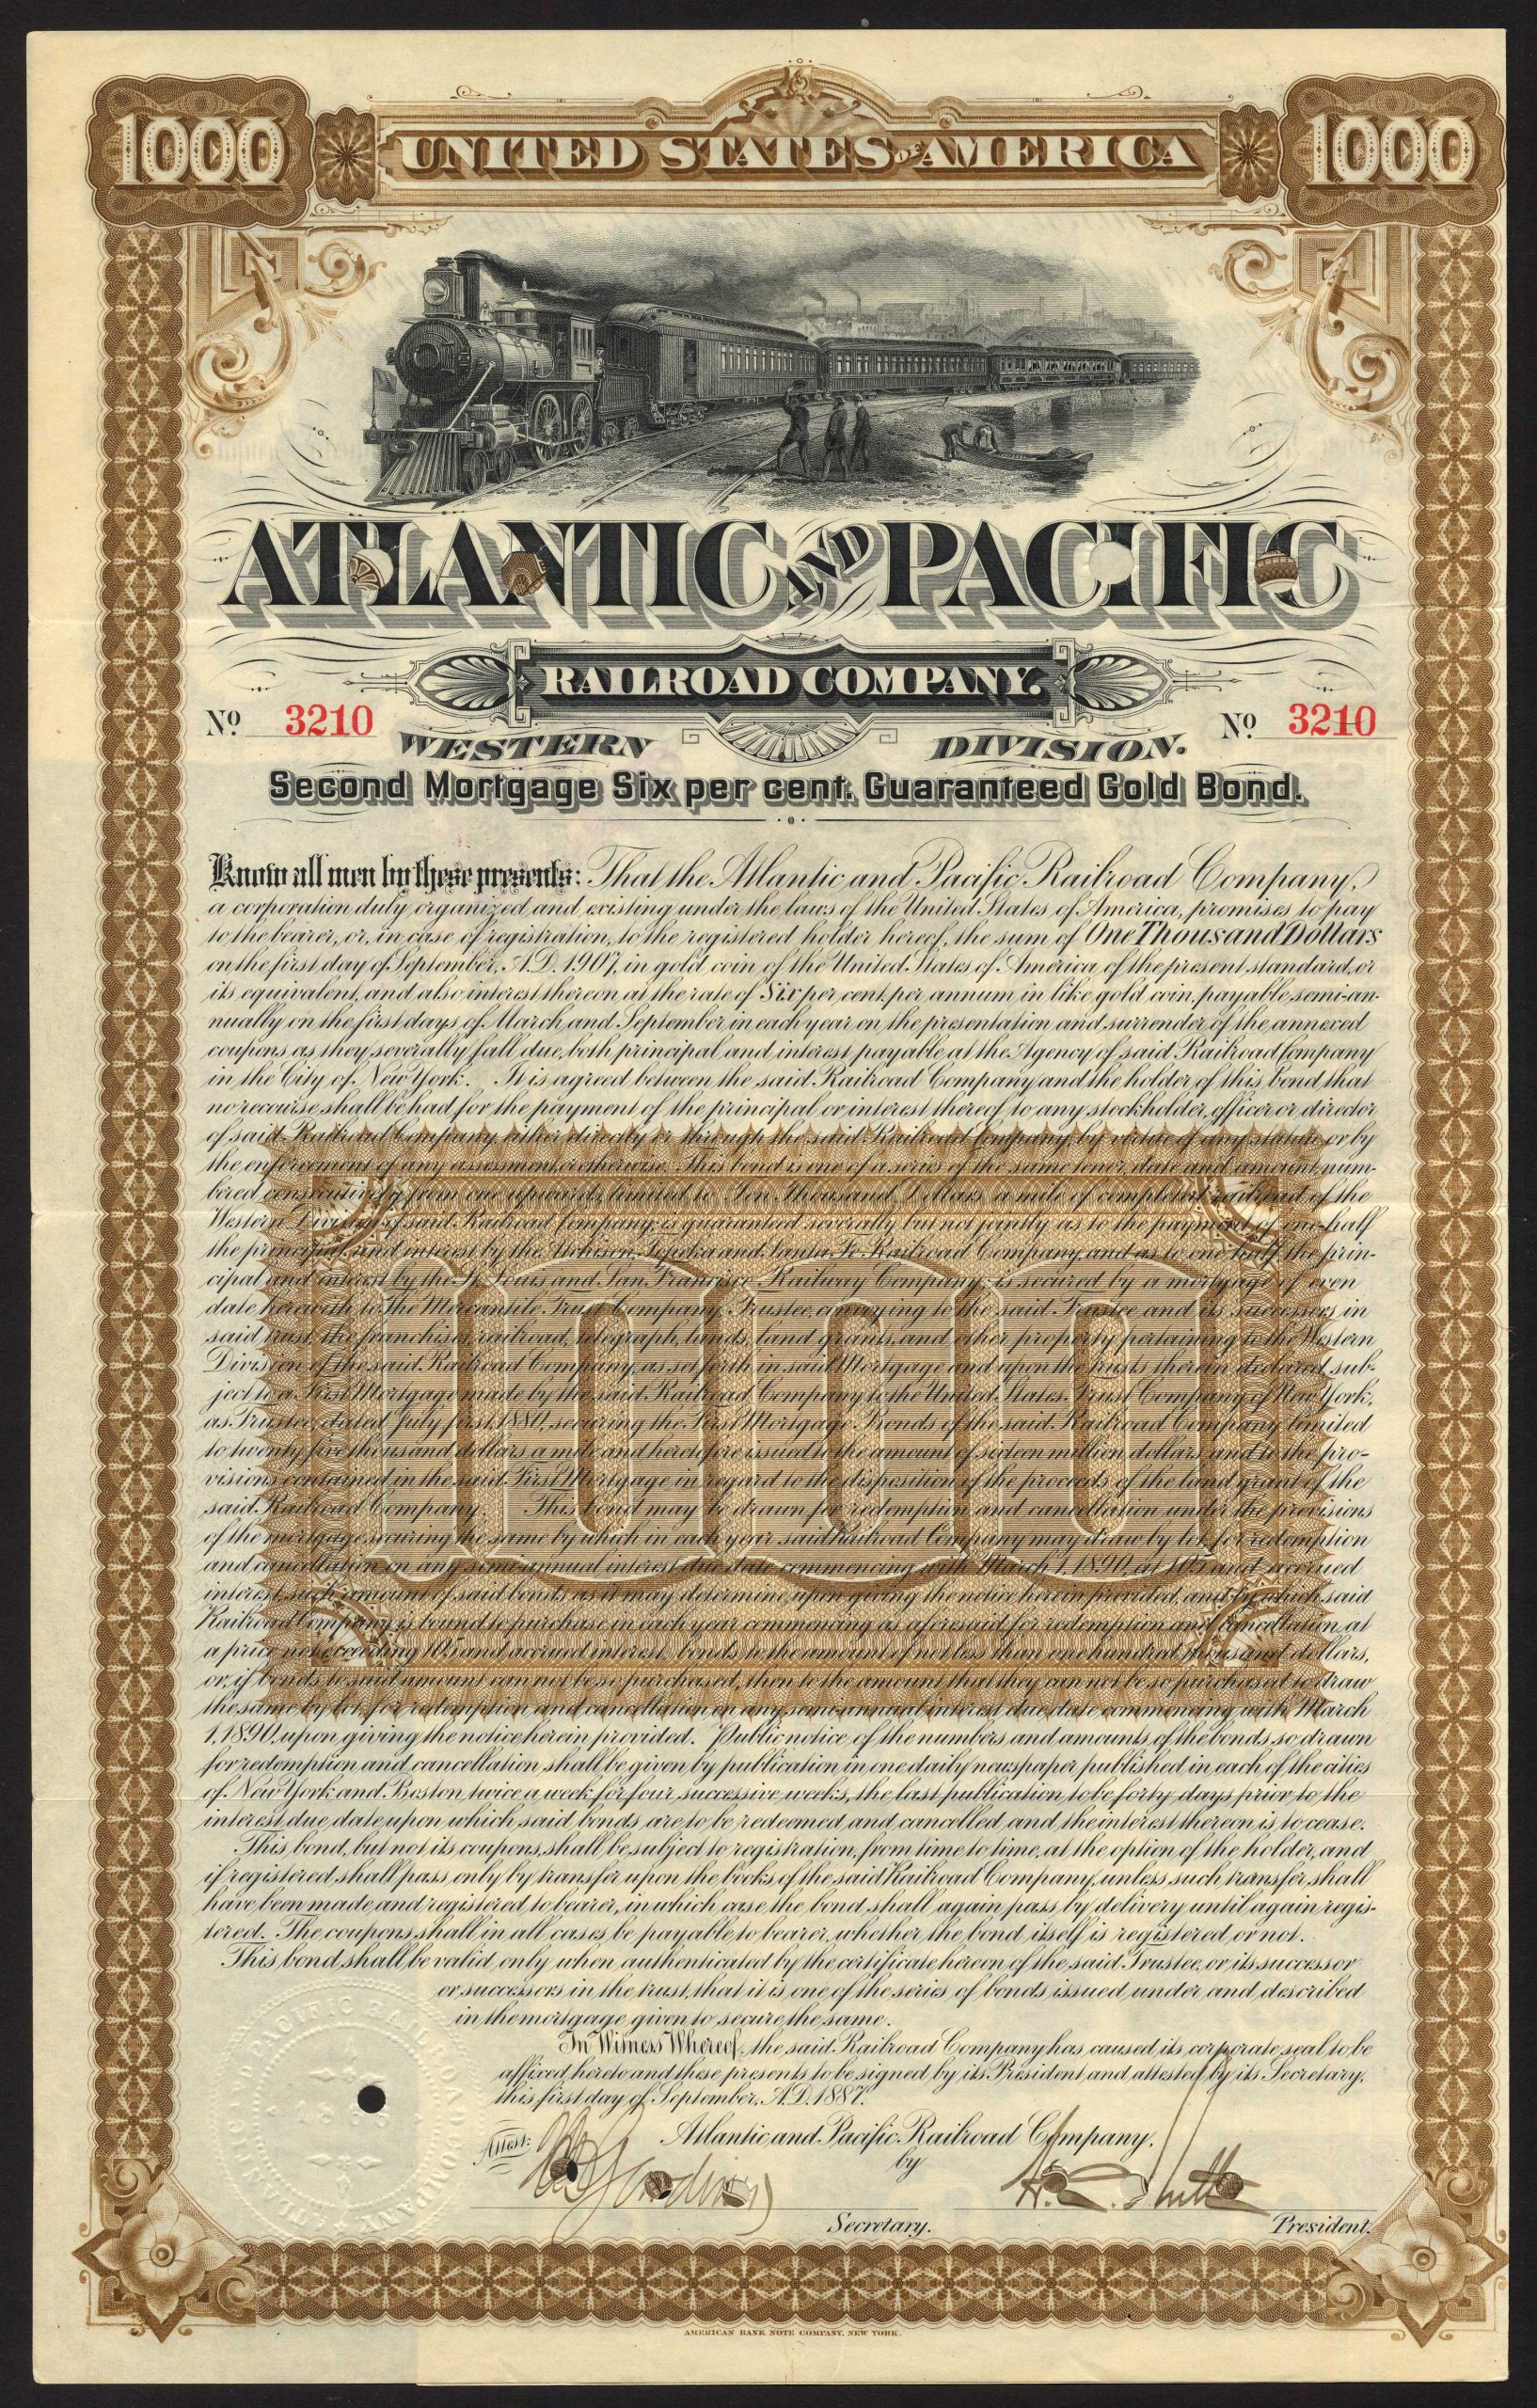 1000 UNITED STATES OF AMERICA 1000
ATLANTIC AND PACIFIC
RAILROAD COMPANY.
No. 3210 No. 3210
WESTERN DIVISION.
Second Mortgage Six per cent. Guaranteed Gold Bond.
Know all men by these presents: That the Atlantic and Pacific Railroad Company,
a corporation duly organized and existing under the laws of the United States of America, promises to pay
to the bearer, or, in case of registration, to the registered holder hereof, the sum of One Thousand Dollars
on the first day of September, A.D. 1907, in gold coin of the United States of America, of the present standard, or
its equivalent, and also interest thereon at the rate of Six per cent. per annum in like gold coin, payable semi-an-
nually on the first days of March and September in each year on the presentation and surrender of the annexed
coupons as they severally fall due, both principal and interest payable at the Agency of said Railroad Company
in the City of New York. It is agreed between the said Railroad Company and the holder of this bond that
no recourse shall be had for the payment of the principal or interest thereof to any stockholder, officer or director
of said Railroad Company, either directly or through the said Railroad Company, by virtue of any statute or by
the enforcement of any assessment or otherwise. This bond is one of a series of the same tenor, date and amount, num-
bered consecutively from one upwards, limited to Ten Thousand Dollars a mile of completed railroad of the
Western Division of said Railroad Company; is guaranteed severally but not jointly as to the payment of one-half
the principal and interest by the Atchison, Topeka and Santa Fe Railroad Company, and as to one half the prin-
cipal and interest by the St. Louis and San Francisco Railway Company; is secured by a mortgage of even
date herewith to the Mercantile Trust Company, Trustee, conveying to the said Trustee and its successors in
said trust, the franchises, railroad, telegraph, lands, land grants, and other property pertaining to the Western
Division of the said Railroad Company, as set forth in said Mortgage and upon the trusts therein declared, sub-
ject to a First Mortgage made by the said Railroad Company to the United States Trust Company of New York,
as Trustee, dated July first, 1880, securing the First Mortgage Bonds of the said Railroad Company limited
to twenty five thousand dollars a mile and heretofore issued to the amount of sixteen million dollars, and to the pro-
visions contained in the said First Mortgage in regard to the disposition of the proceeds of the land grant of the
said Railroad Company. This bond may be drawn for redemption and cancellation under the provisions
of the mortgage securing the same by which in each year said Railroad Company may draw by lot, for redemption
and cancellation on any semi-annual interest due date commencing with March 1, 1890, at 105 and accrued
interest, such amount of said bonds as it may determine, upon giving the notice herein provided, and by which said
Railroad Company is bound to purchase in each year commencing as aforesaid for redemption and cancellation at
a price not exceeding 105 and accrued interest, bonds to the amount of not less than one hundred thousand dollars,
or, if bonds to said amount can not be so purchased, then to the amount that they can not be so purchased to draw
the same by lot, for redemption and cancellation on any semi-annual interest due date commencing with March
1, 1890, upon giving the notice herein provided. Public notice of the numbers and amounts of the bonds so drawn
for redemption and cancellation shall be given by publication in one daily newspaper published in each of the cities
of New York and Boston twice a week for four successive weeks, the last publication to be forty days prior to the
interest due date upon which said bonds are to be redeemed and cancelled, and the interest thereon is to cease.
This bond, but not its coupons, shall be subject to registration, from time to time, at the option of the holder, and
if registered shall pass only by transfer upon the books of the said Railroad Company, unless such transfer shall
have been made and registered to bearer, in which case the bond shall again pass by delivery until again regis-
tered. The coupons shall in all cases be payable to bearer, whether the bond itself is registered or not.
This bond shall be valid only when authenticated by the certificate hereon of the said Trustee, or its successor
or successors in the trust, that it is one of the series of bonds issued under and described
in the mortgage given to secure the same.
In Witness Whereof, the said Railroad Company has caused its corporate seal to be
affixed hereto and these presents to be signed by its President and attested by its Secretary,
this first day of September, A.D. 1887.
Attest: Atlantic and Pacific Railroad Company,
by
Secretary. President.
ATLANTIC AND PACIFIC RAILROAD COMPANY
AMERICAN BANK NOTE COMPANY, NEW YORK.